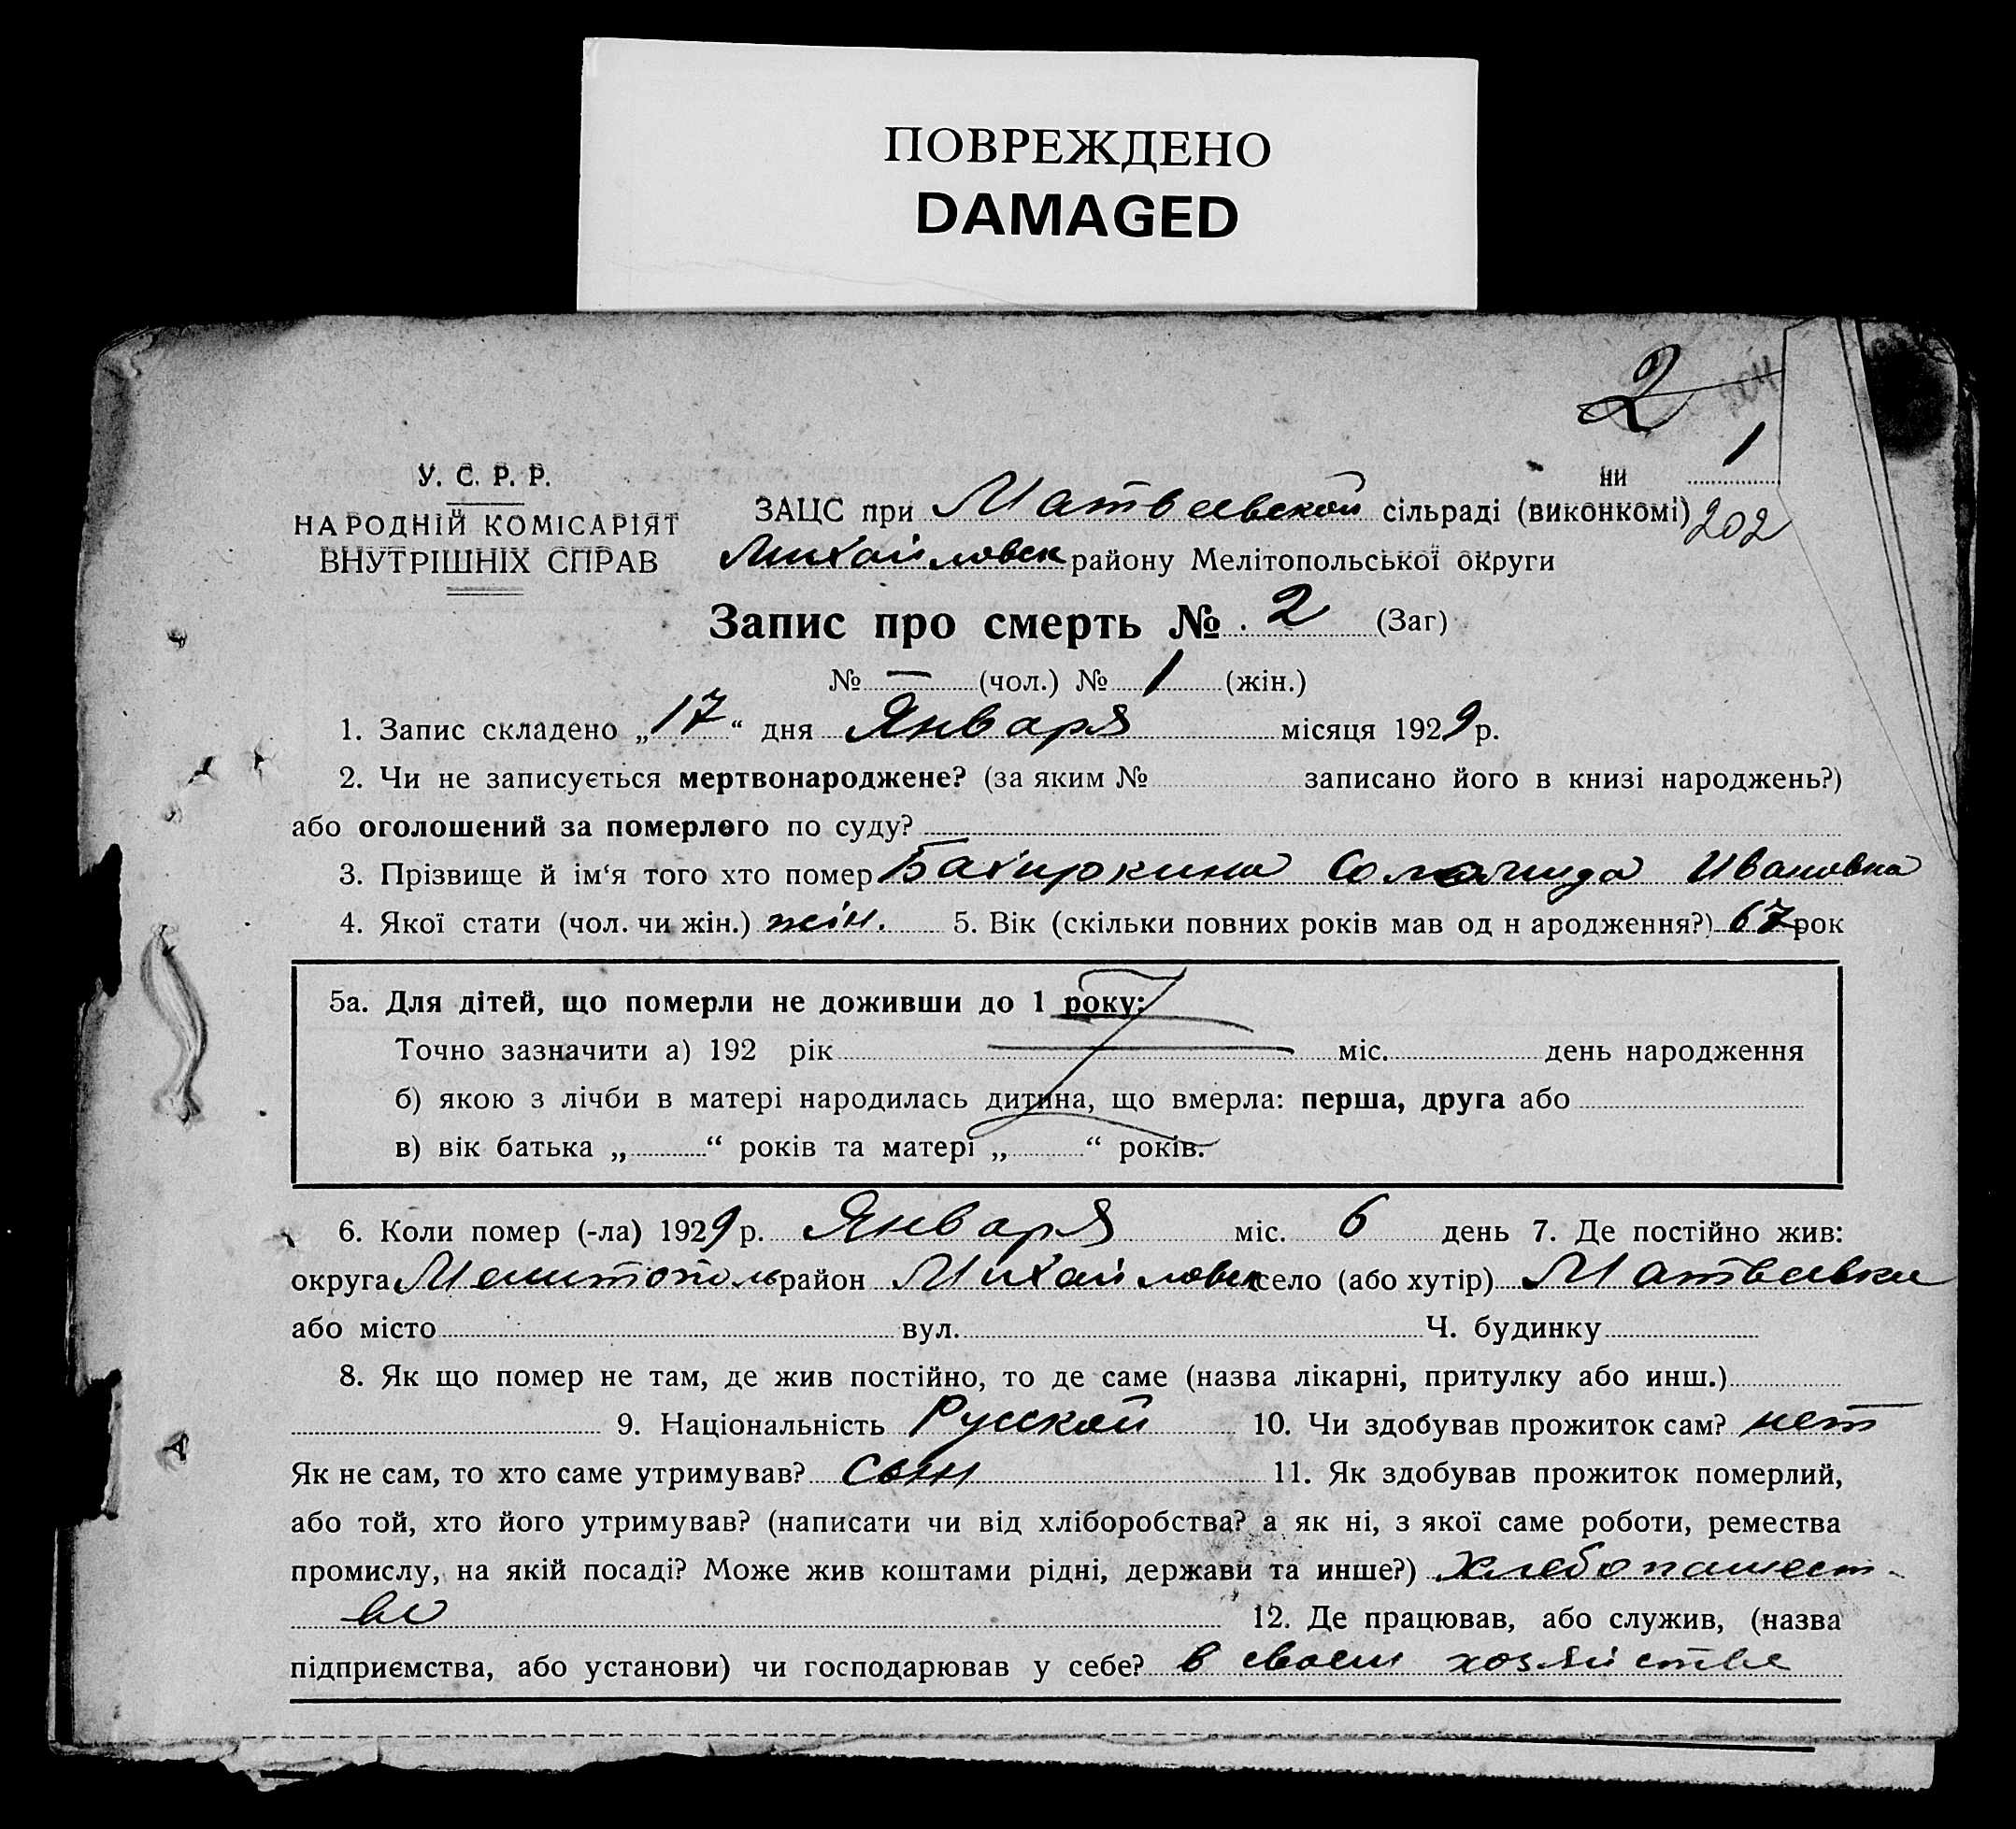 ПОВРЕЖДЕНО
DAMAGED
2
1
ни
У. С. Р. Р.
НАРОДНІЙ КОМІСАРІЯТ
ВНУТРІШНІХ СПРАВ
ЗАЦС при Матвеевской сільраді (виконкомі) 202
Михайловск району Мелітопольської округи
Запис про смерть № 2 (Заг)
№ — (чол.) № 1 (жін.)
1. Запис складено „17“ дня Января місяця 1929 р.
2. Чи не записується мертвонароджене? (за яким № записано його в книзі народжень?)
або оголошений за померлого по суду?
3. Прізвище й ім‘я того хто помер Ивановна
4. Якої стати (чол. чи жін.) жін. 5. Вік (скільки повних років мав од н ародження?) 67 рок
5а. Для дітей, що померли не доживши до 1 року:
Точно зазначити а) 192 рік міс. день народження
б) якою з лічби в матері народилась дитина, що вмерла: перша, друга або
в) вік батька „ “ років та матері „ “ років.
6. Коли помер (-ла) 1929 р. Января міс. 6 день 7. Де постійно жив:
округа Мелитополь район Михайловск село (або хутір) Матвеевка
або місто вул. Ч. будинку
8. Як що помер не там, де жив постійно, то де саме (назва лікарні, притулку або инш.)
9. Національність Русской 10. Чи здобував прожиток сам? нет
Як не сам, то хто саме утримував? Сын 11. Як здобував прожиток померлий,
або той, хто його утримував? (написати чи від хліборобства? а як ні, з якої саме роботи, ремества
промислу, на якій посаді? Може жив коштами рідні, держави та инше?) Хлебопашест-
во 12. Де працював, або служив, (назва
підприємства, або установи) чи господарював у себе? в своем хозяйстве